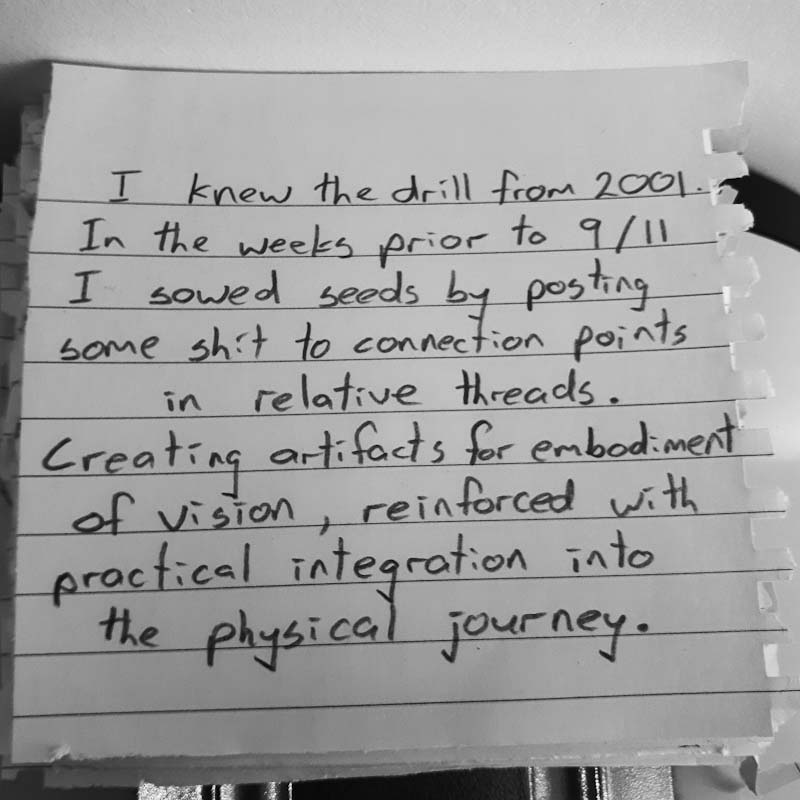 I knew the drill from 2001.
In the weeks prior to 9/11
I sowed seeds by posting
some shit to connection points
in relative threads.
Creating artifacts for embodiment
of vision, reinforced with
practical integration into
the physical journey.